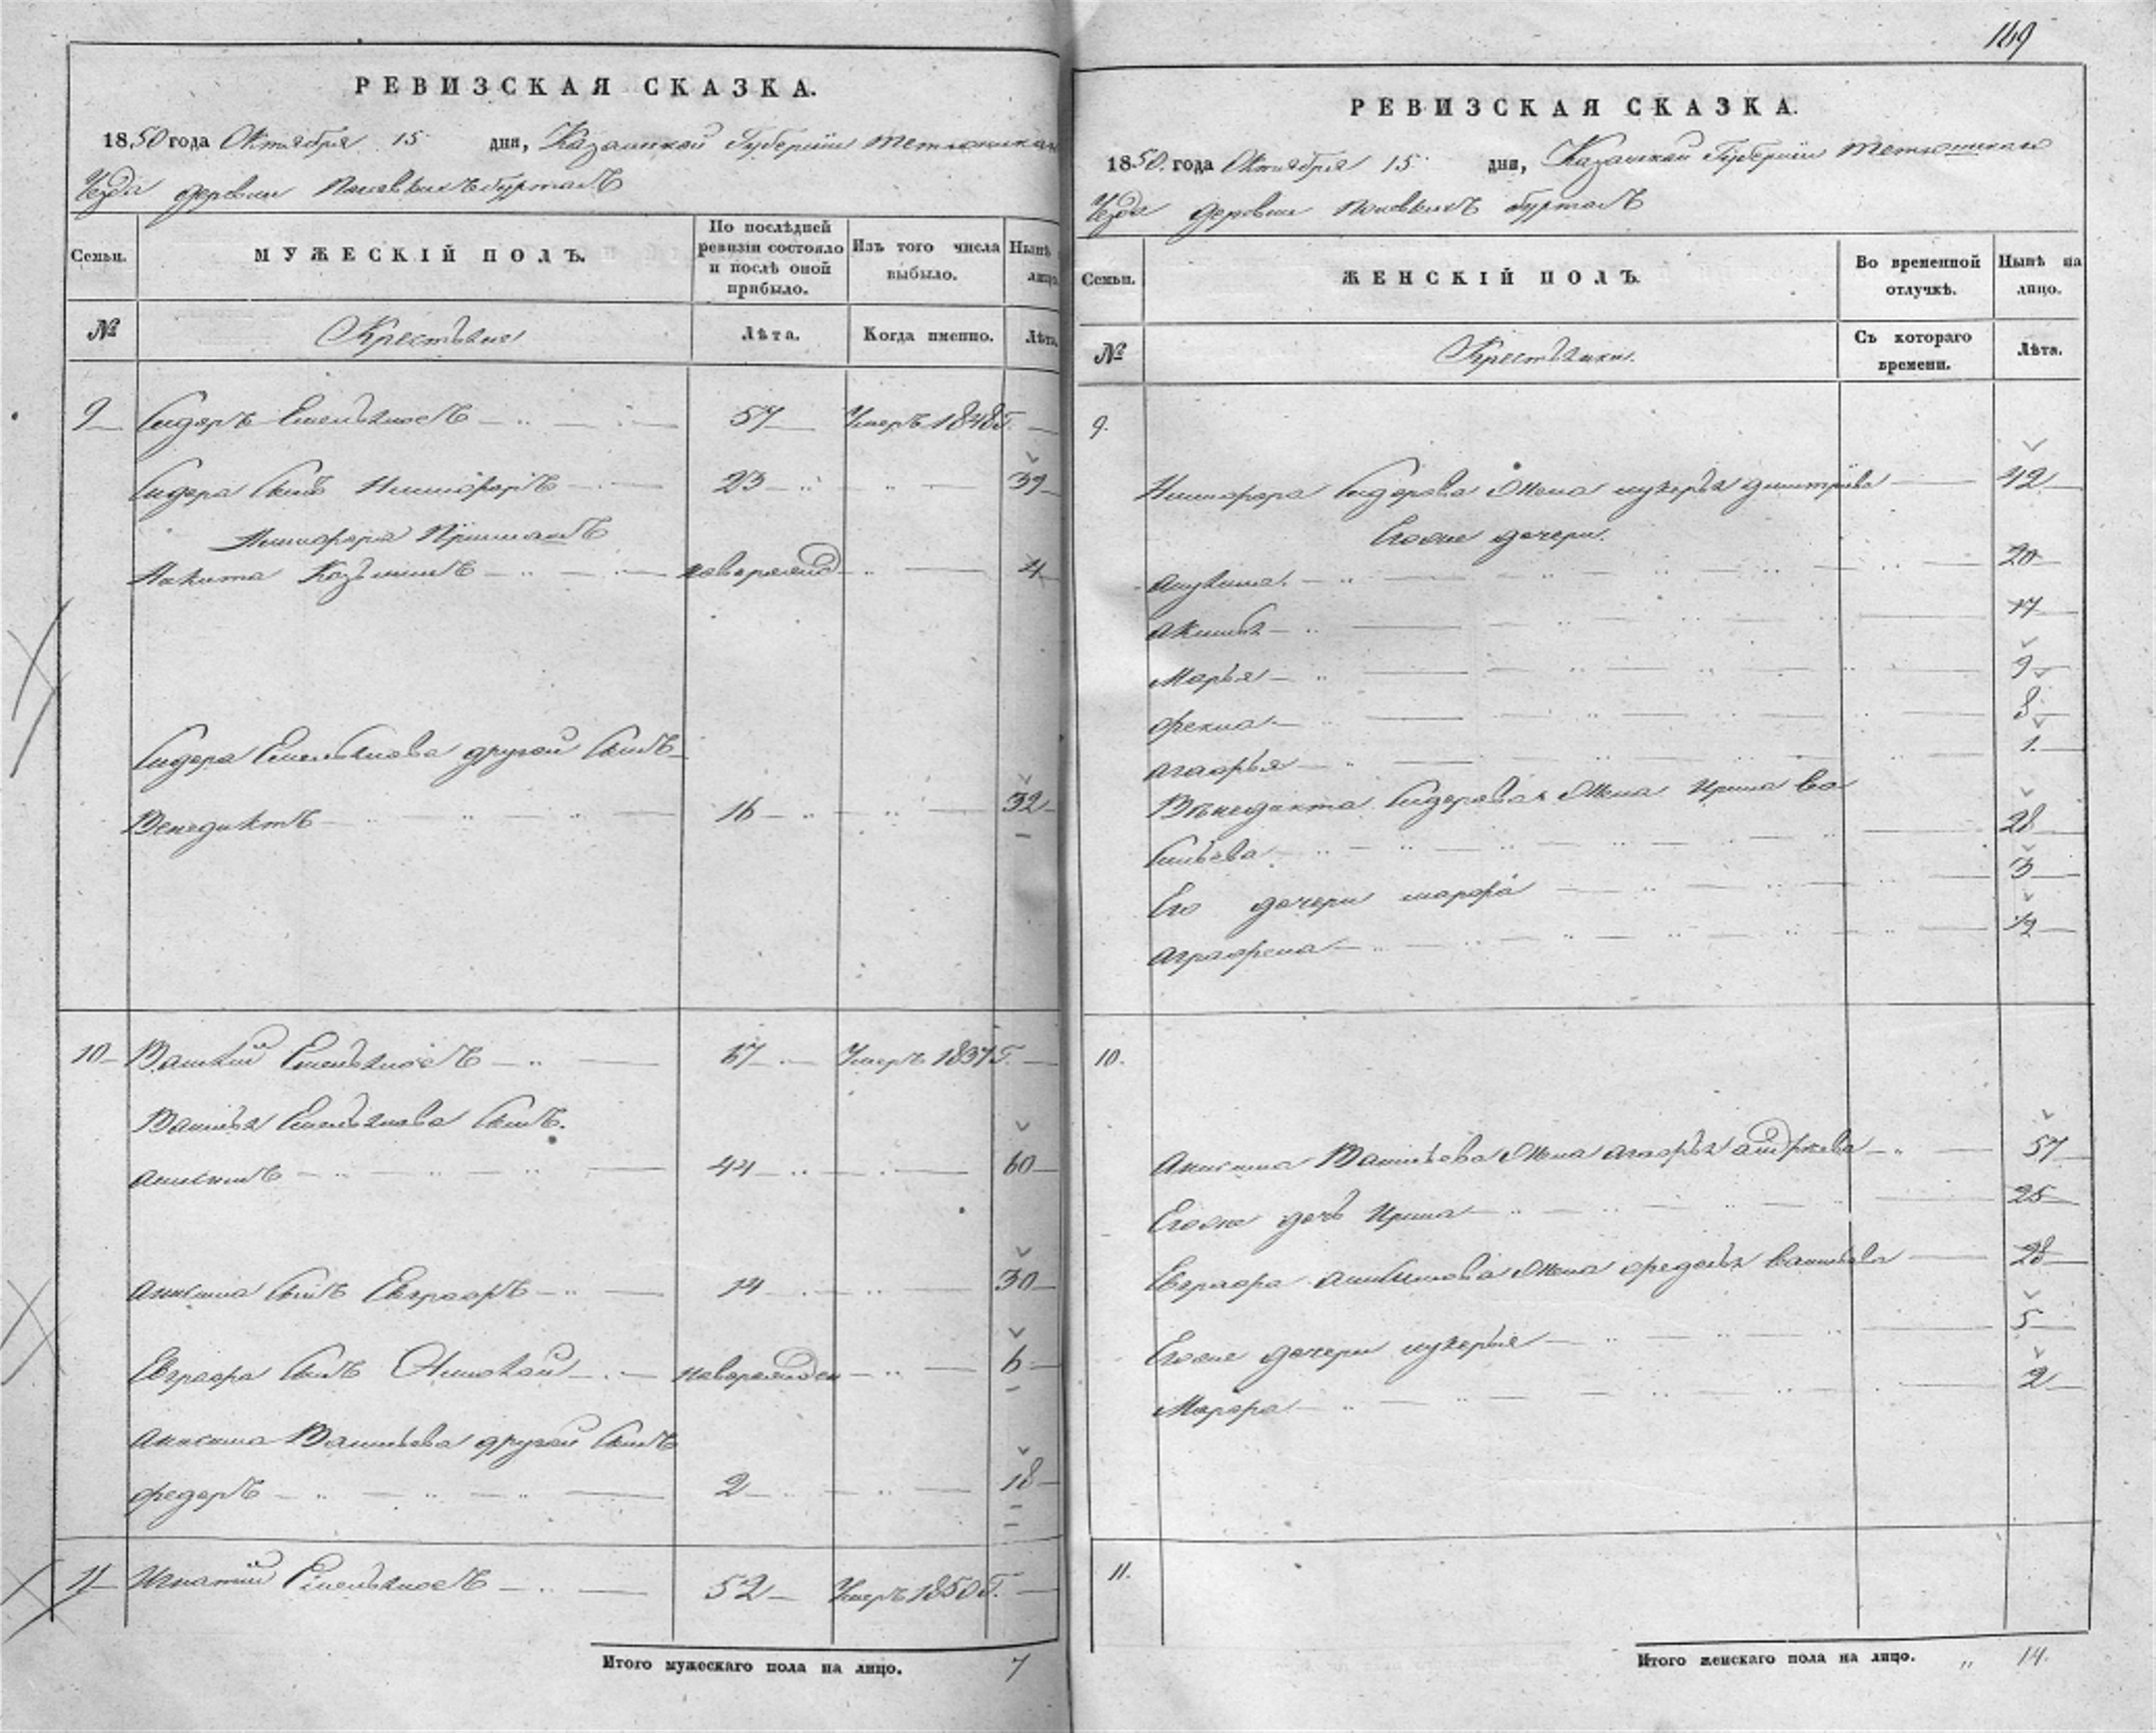 149
РЕВИЗСКАЯ СКАЗКА.
1850 года Октября 15 дня, Казанской Губернїи Тетюшскаго
Уезда деревни Буртасъ
Семьи. МУЖЕСКІЙ ПОЛЪ. По послѣдней ревизіи состояло и послѣ оной прибыло. Изъ того числа выбыло. Нынѣ лицо
№ Крестьяне Лѣта. Когда именно. Лѣта.
9 Сидоръ Емельяновъ 57 Умеръ 1848 Г.
Сидора Сынъ Никифоръ 23 39
Никифора Прїимышъ
Никита Козьминъ новорожд 4
Сидора Емельянова другой Сынъ
Венедиктъ 16 32
10 Василїй Емельяновъ 67 Умеръ 1837 Г.
Василья Емельянова Сынъ.
Анисимъ 44 60
Анисима Сынъ Евграфъ 14 30
Евграфа Сынъ Николай новорожден 6
Анисима Васильева другой Сынъ
Федоръ 2 18
11 Игнатїй Емельяновъ 52 Умеръ 1850 Г.
Итого мужескаго пола на лицо. 7
РЕВИЗСКАЯ СКАЗКА.
1850 года Октября 15 дня, Казанской Губернїи Тетюшскаго
Уезда деревни Буртасъ
Семьи. ЖЕНСКІЙ ПОЛЪ. Во временной отлучкѣ. Нынѣ на лицо.
№ Крестьянки. Съ котораго времени. Лѣта.
9.
Никифора Сидорова жена лукерья дмитрїева 42
Егоже дочери.
20
Акилина 17
Марья 9
Фекла 8
Агафья 1
Венедикта Сидорова жена Ирина Ва
сильева 28
Его дочери марфа 3
Аграфена 1/2
10.
Анисима Васильева жена агафья андреева 57
Егоже дочь Ирина 25
Евграфа Анисимова жена федосья васильева 28
Егоже дочери лукерья 5
Марфа 2
11.
Итого женскаго пола на лицо. 14.